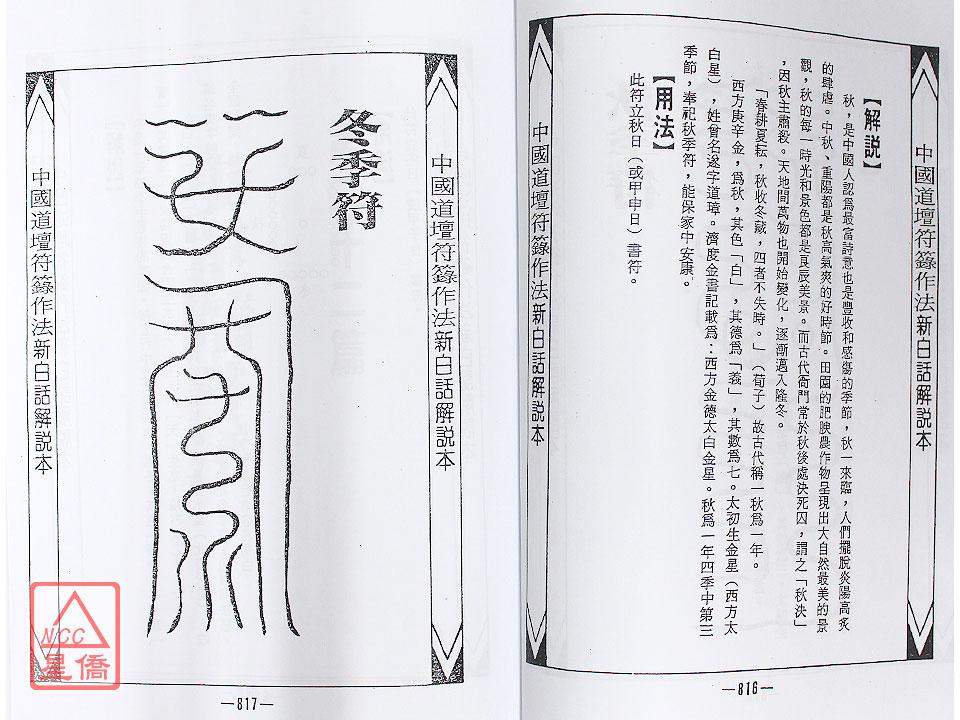 中國道壇符籙作法新白話解説本
【解説】
秋，是中國人認爲最富詩意也是豐收和感傷的季節，秋一來臨，人們擺脫炎陽高炙
的肆虐。中秋、重陽都是秋高氣爽的好時節。田園的肥腴農作物呈現出大自然最美的景
觀，秋的每一時光和景色都是良辰美景。而古代衙門常於秋後處決死囚，謂之「秋決」
，因秋主肅殺。天地間萬物也開始變化，逐漸邁入隆冬。
「春耕夏耘，秋收冬藏，四者不失時。」（荀子）故古代稱一秋爲一年。
西方庚辛金，爲秋，其色「白」，其德爲「義」，其數爲七。太初生金星（西方太
白星），姓曾名遂字道璋。濟度金書記載爲：西方金德太白金星。秋爲一年四季中第三
季節，奉祀秋季符，能保家中安康。
【用法】
此符立秋日（或甲申日）書符。
中國道壇符籙作法新白話解説本
—816—
中國道壇符籙作法新白話解説本
冬季符
中國道壇符籙作法新白話解説本
—817—
NCC
星僑